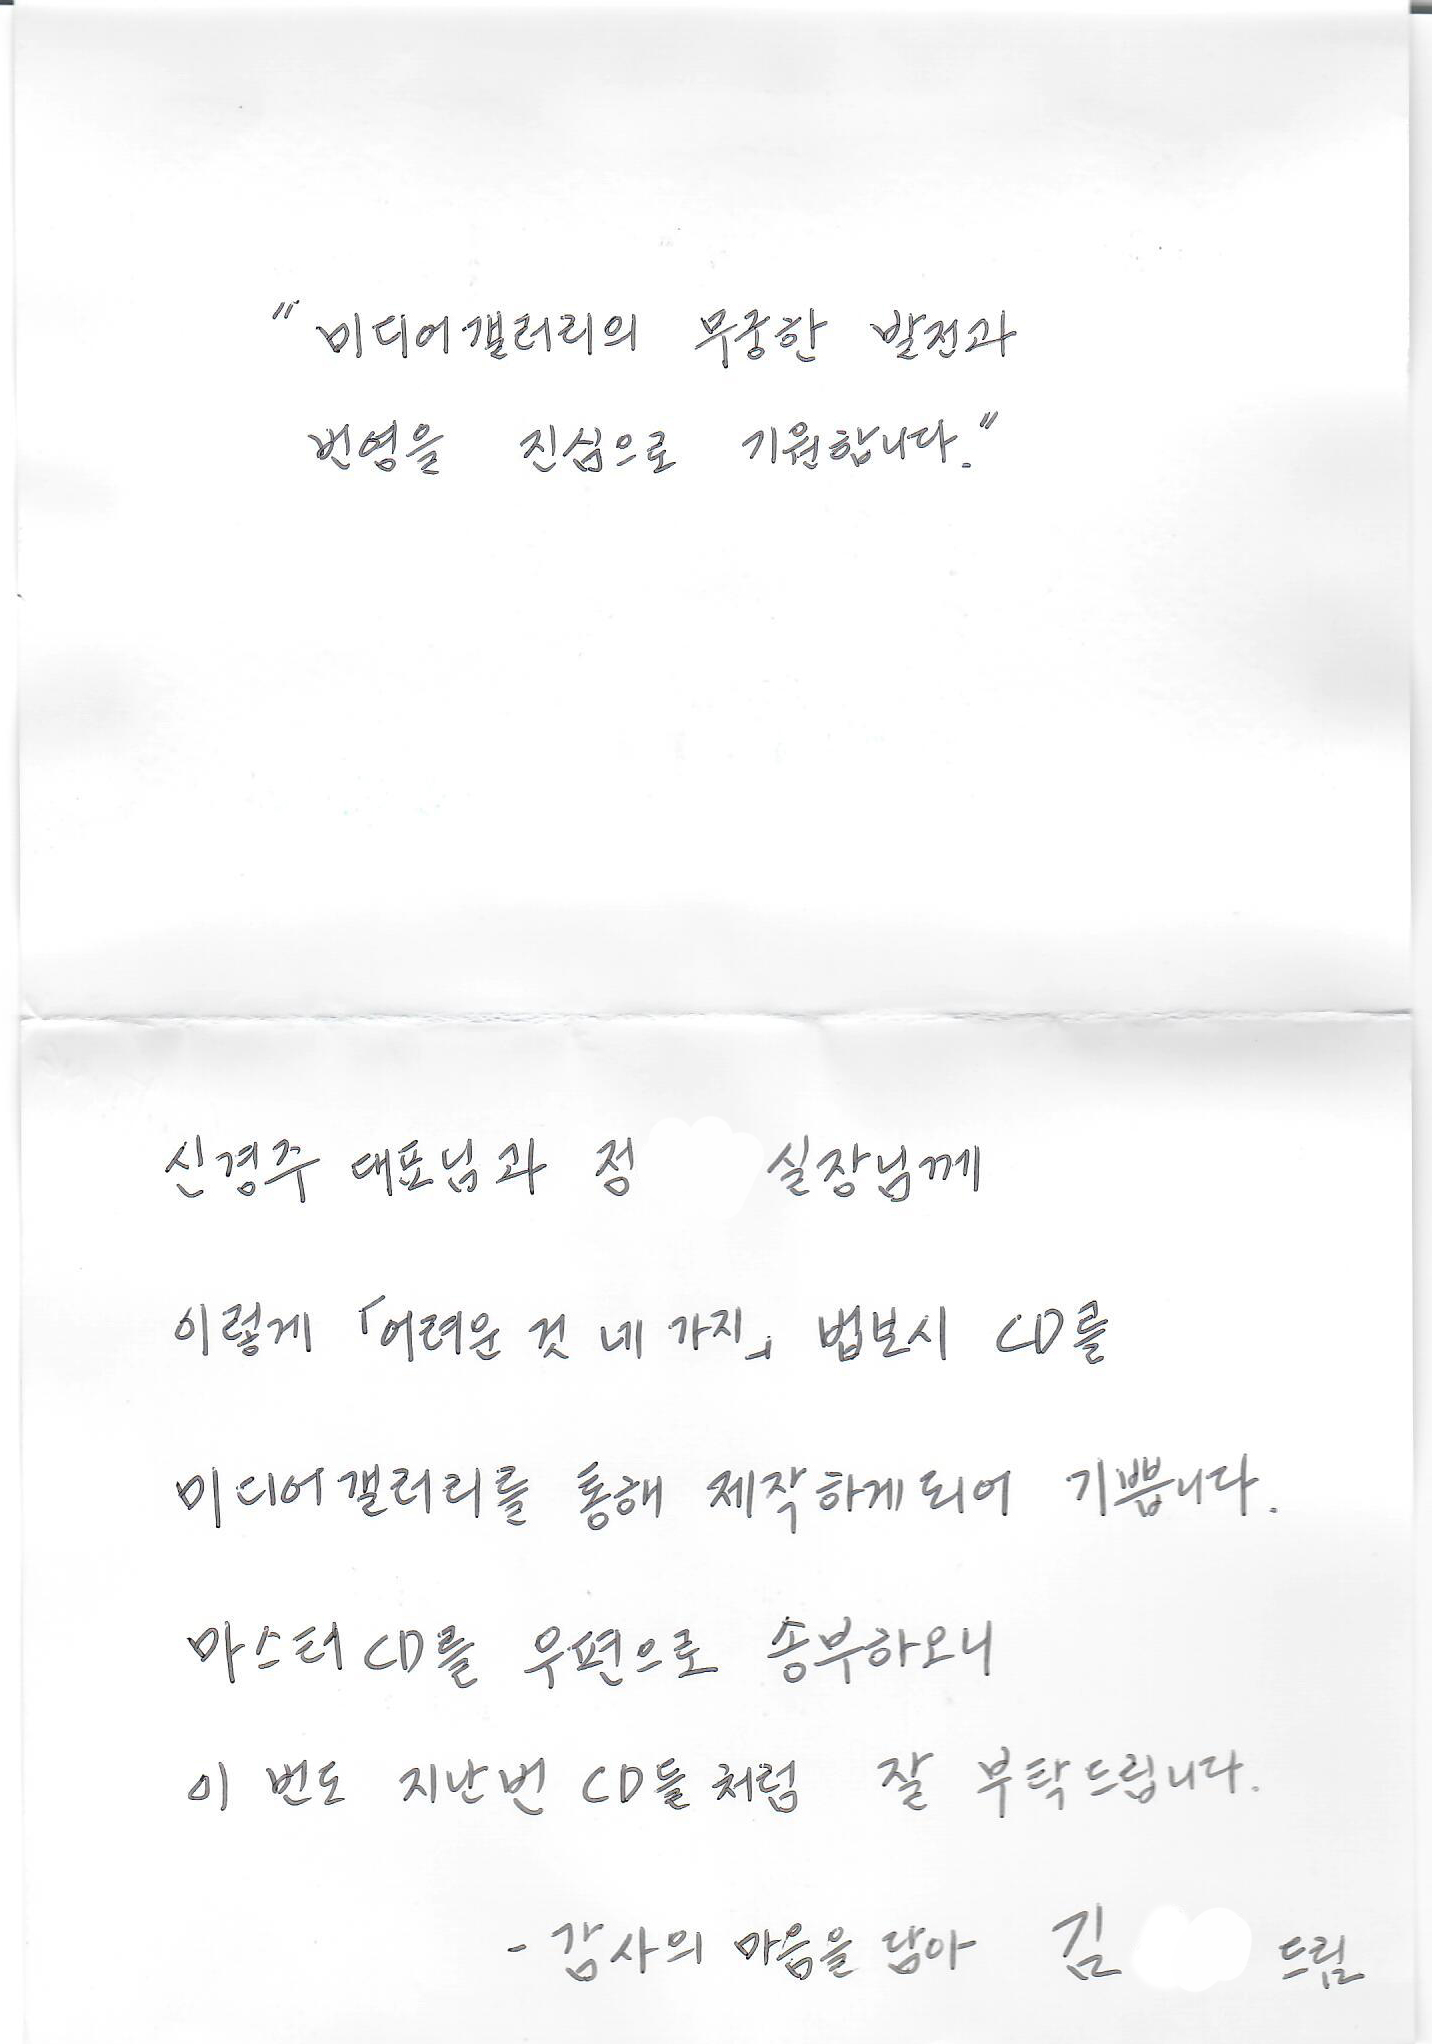 "미디어갤러리의 무궁한 발전과
번영을 진심으로 기원합니다."
신경주 대표님과 정 실장님께
이렇게 「어려운 것 네 가지」 법보시 CD를
미디어갤러리를 통해 제작하게되어 기쁩니다.
마스터 CD를 우편으로 송부하오니
이 번도 지난번 CD들처럼 잘 부탁드립니다.
- 감사의 마음을 담아 김 드림